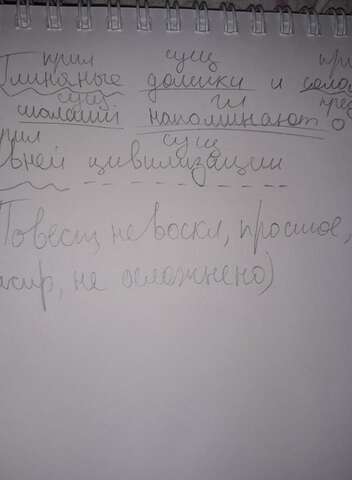 прил сущ при
Глиняные домики и соло
сущ гл пред
шалаши напоминают о
прил сущ
вней цивилизации
(Повест, невоскл, простое,
аспр, не осложнено)